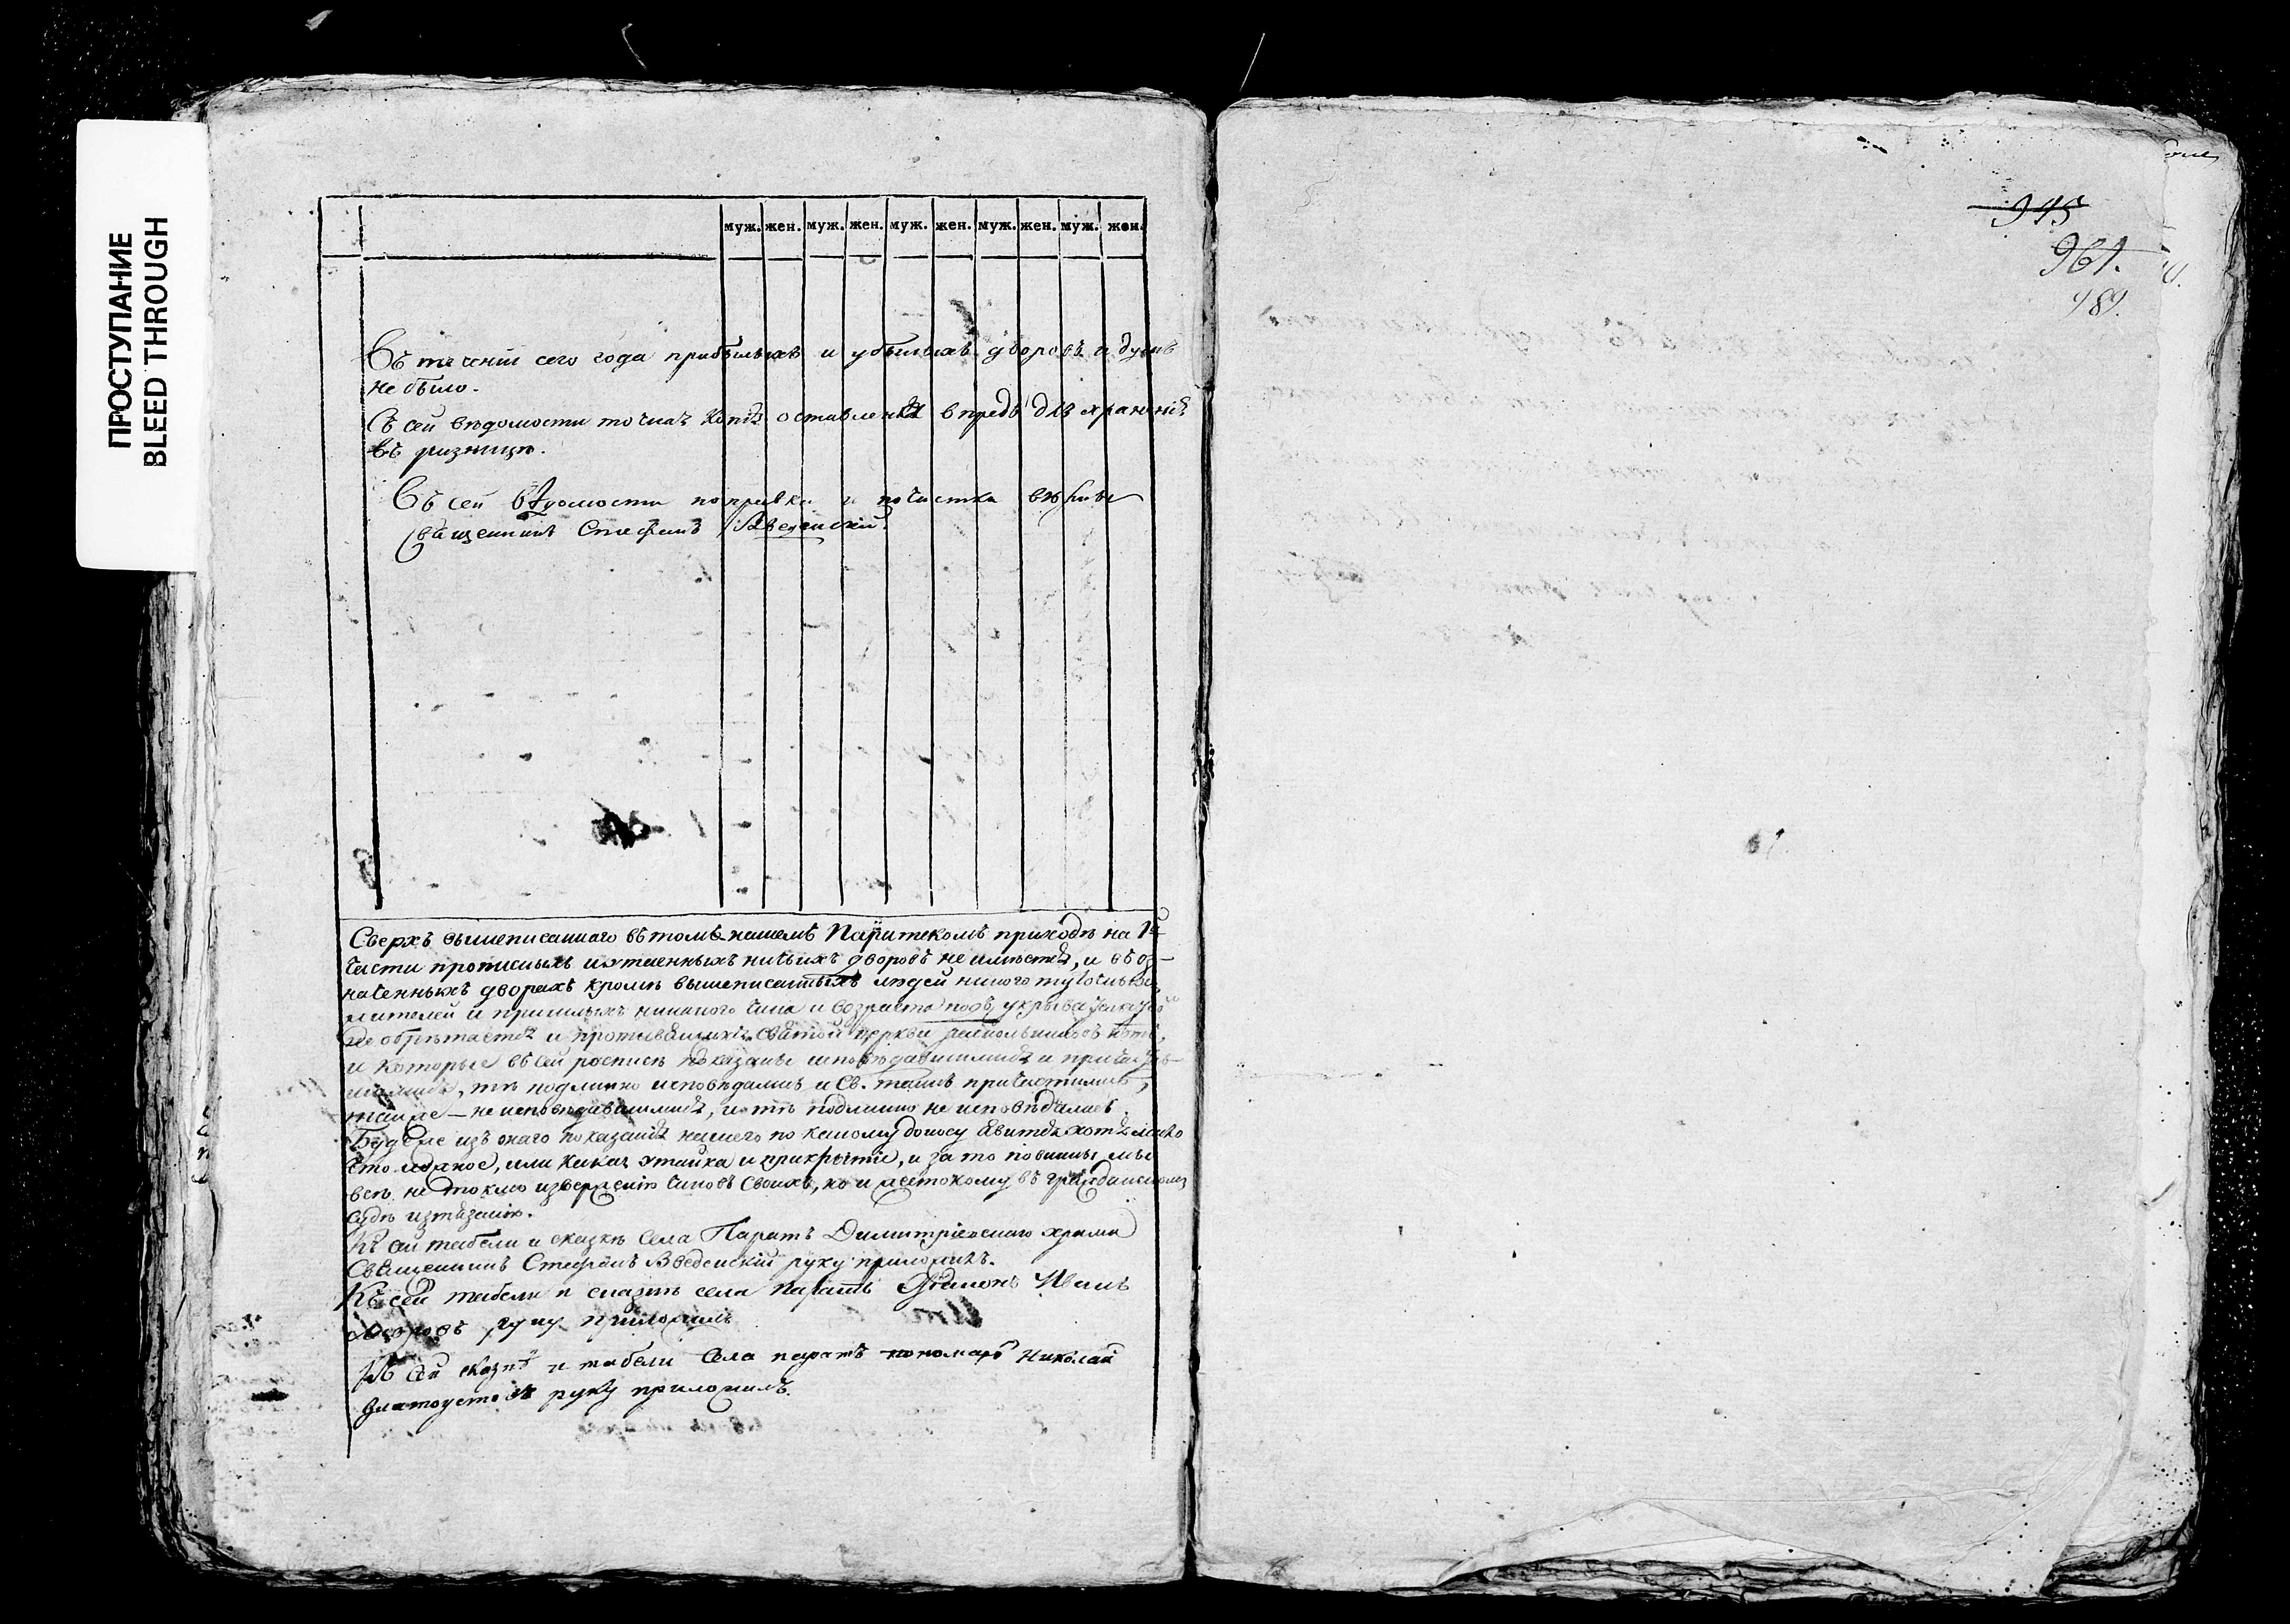 ПРОСТУПАНИЕ
BLEED THROUGH
муж. жен. муж. жен. муж. жен. муж. жен. муж. жен.
Въ теченіи сего года прибылыхъ и убылыхъ дворовъ и душъ
не было.
Съ сей вѣдомости точная копія оставлена впредь для храненія
въ ризницѣ.
Въ сей вѣдомости поправки и почистка
Священникъ Стефанъ Введенскій.
Сверхъ вышеписаннаго въ томъ нашемъ Паратскомъ приходѣ на
части прописныхъ и утаенныхъ ничьихъ дворовъ не имѣется, и въ оз-
наченныхъ дворахъ кромѣ вышеписанныхъ людей никого
жителей и пришлыхъ никакого чина и возраста подъ укрывательствомъ
не обрѣтается и противящихся святой церкви раскольниковъ нѣтъ,
и которые въ сей росписи показаны исповѣдавшимися и причастив-
шимися, тѣ подлинно исповѣдались и Св. таинъ причастились,
также — не исповѣдавшимися, и тѣ подлинно не исповѣдались.
Будеже изъ онаго показанія нашего по какому доносу явится хотя мало
что ложное, или какая утайка и прикрытіе, и за то повинны мы
всѣ не токмо изверженію чиновъ своихъ, но и жестокому въ гражданскомъ
судѣ изтязанію.
Къ сей табели и сказкѣ села Паратъ Димитріевскаго храма
Священникъ Стефанъ Введенскій руку приложилъ.
Къ сей табели и сказкѣ села Паратъ Иванъ
руку приложилъ
Къ сей сказкѣ и табели села паратъ пономарь Николай
Златоустовъ руку приложилъ.
945
961.
489.